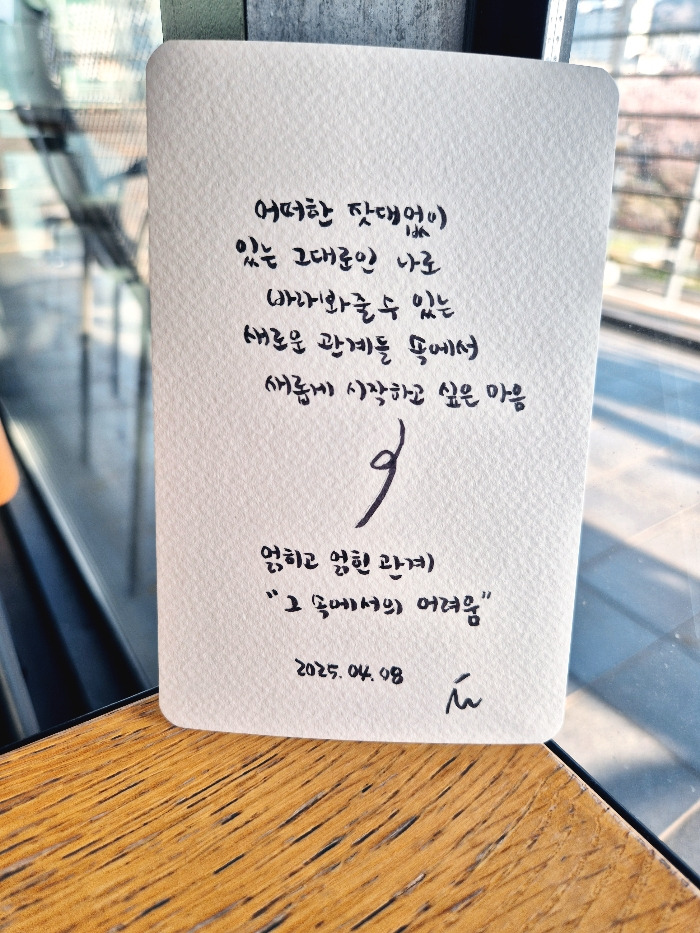 어떠한 잣대없이
있는 그대로인 나로
바라봐줄 수 있는
새로운 관계들 속에서
새롭게 시작하고 싶은 마음
얽히고 얽힌 관계
"그 속에서의 어려움"
2025. 04. 08